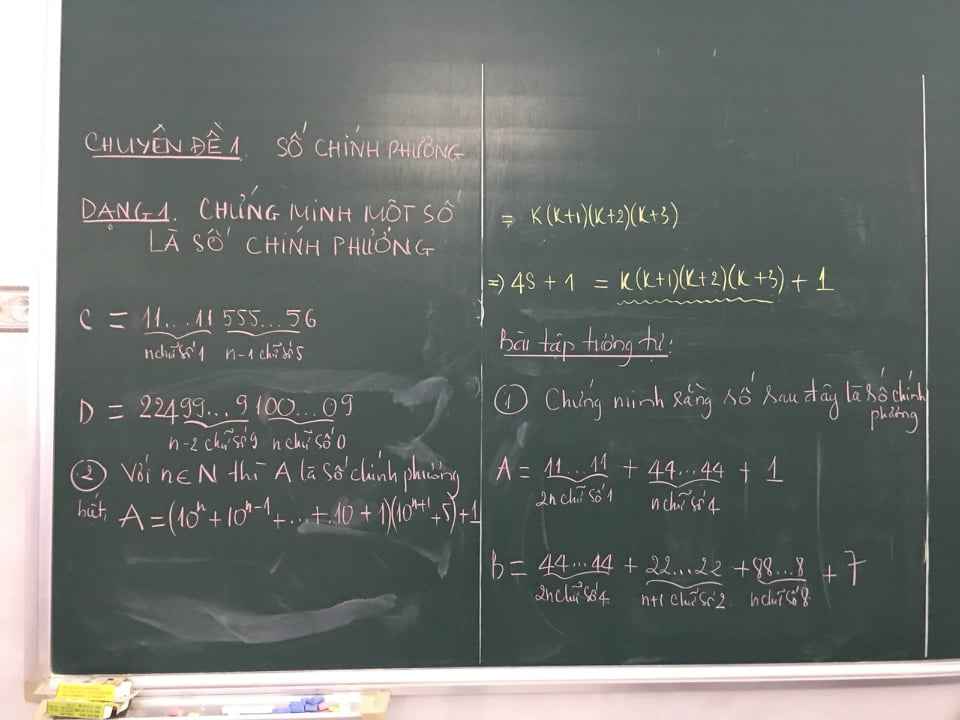 CHUYÊN ĐỀ 1. SỐ CHÍNH PHƯƠNG
DẠNG 1. CHỨNG MINH MỘT SỐ
LÀ SỐ CHÍNH PHƯƠNG
C = 11...11 555...56
n chữ số 1 n-1 chữ số 5
D = 22499...9100...09
n-2 chữ số 9 n chữ số 0
② Với n∈N thì A là số chính phương
A = (10ⁿ + 10ⁿ⁻¹ + ... + 10 + 1)(10ⁿ⁺¹ + 5) + 1
= K(K+1)(K+2)(K+3)
=> 4S + 1 = K(K+1)(K+2)(K+3) + 1
Bài tập tương tự:
① Chứng minh rằng số sau đây là số chính
phương
A = 11...11 + 44...44 + 1
2n chữ số 1 n chữ số 4
B = 44...44 + 22...22 + 88...8 + 7
2n chữ số 4 n+1 chữ số 2 n chữ số 8